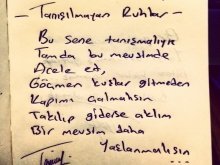 — Tanışılmayan Ruhlar —
Bu Sene tanışmalıyız
Tamda bu mevsimde
Acele et,
Göçmen kuşlar gitmeden
Kapımı çalmalısın
Takılıp giderse aklım
Bir mevsim daha
Yaslanmalısın